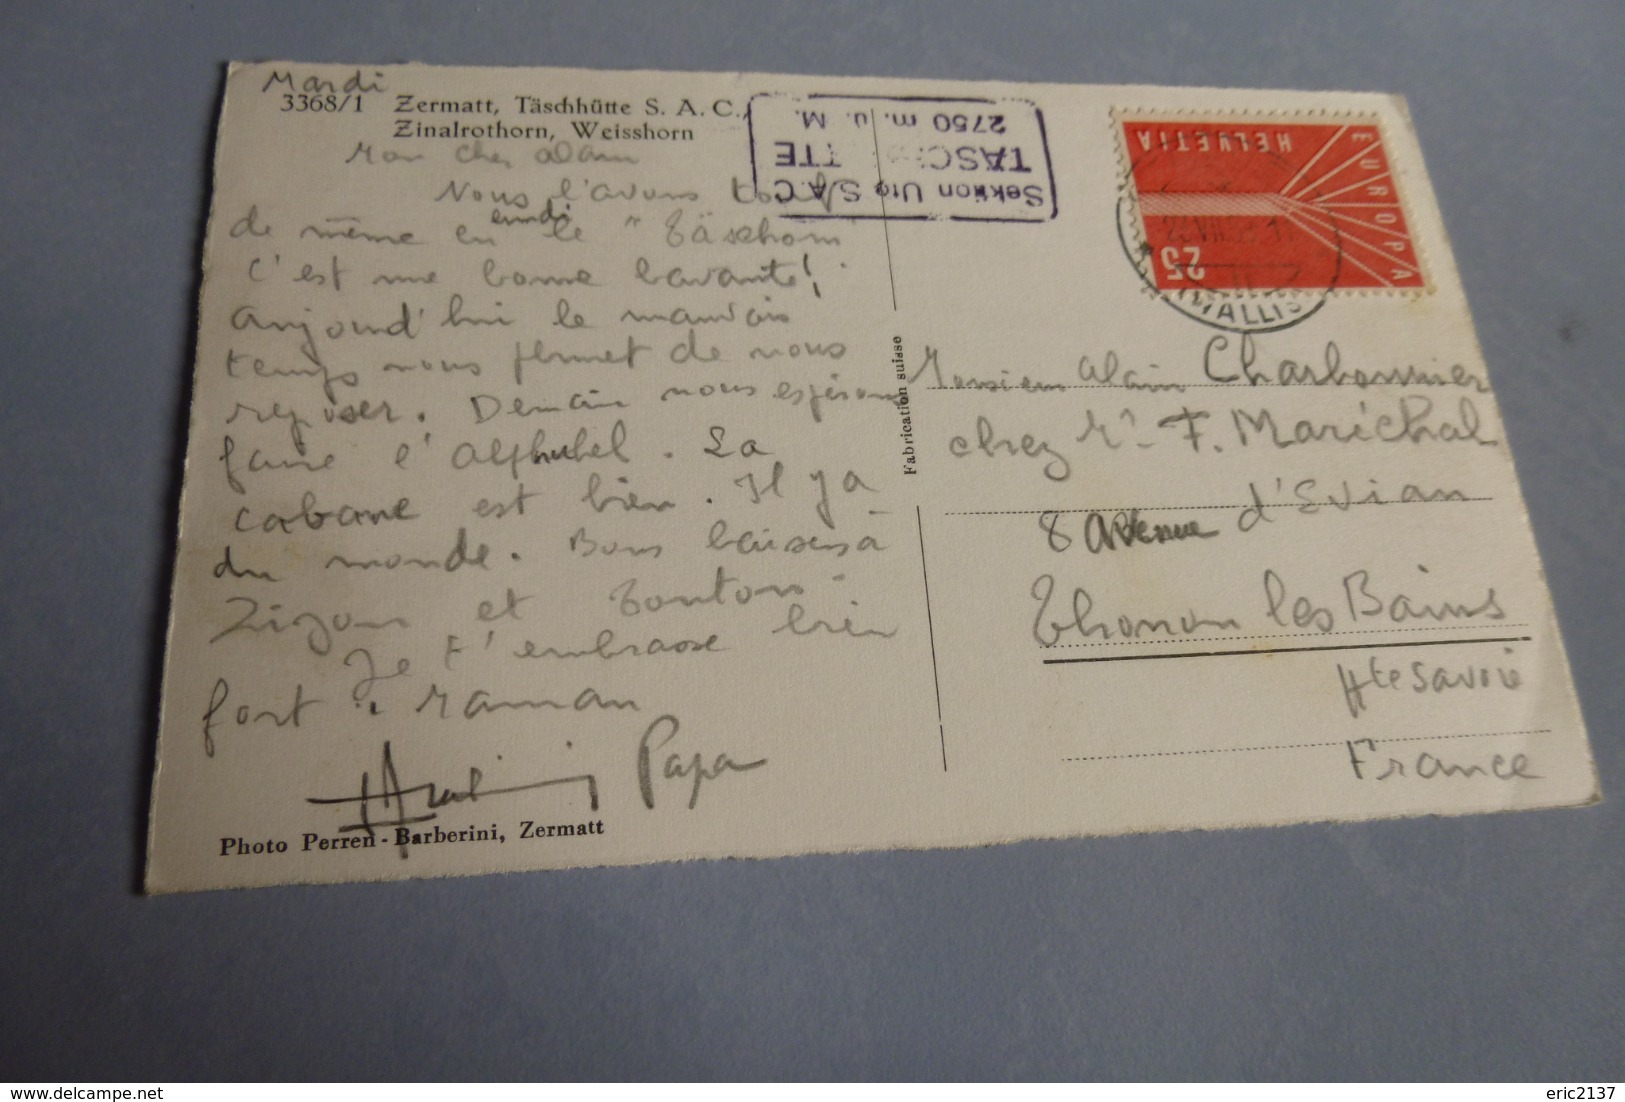 Mardi
3368/1 Zermatt, Täschhütte S. A. C.,
Zinalrothorn, Weisshorn
Mon cher Alain
Nous l'avons
de même eu lundi le "Täschorn"
C'est une bonne bavante!
Aujourd'hui le mauvais
temps nous permet de nous
reposer. Demain nous espérons
faire l'Alphubel. La
cabane est bien. Il y a
du monde. Bons baisers à
Zizou et Tonton.
Je t'embrasse bien
fort. Maman
Papa
Photo Perren-Barberini, Zermatt
Fabrication suisse
Sektion Uto S.A.C
TÄSC TTE
2750 m. ü. M.
HELVETIA
EUROPA
25
WALLIS
Monsieur Alain Charbonnier
chez Mr F. Maréchal
8 Avenue d'Evian
Thonon les Bains
Hte Savoie
France
eric2137